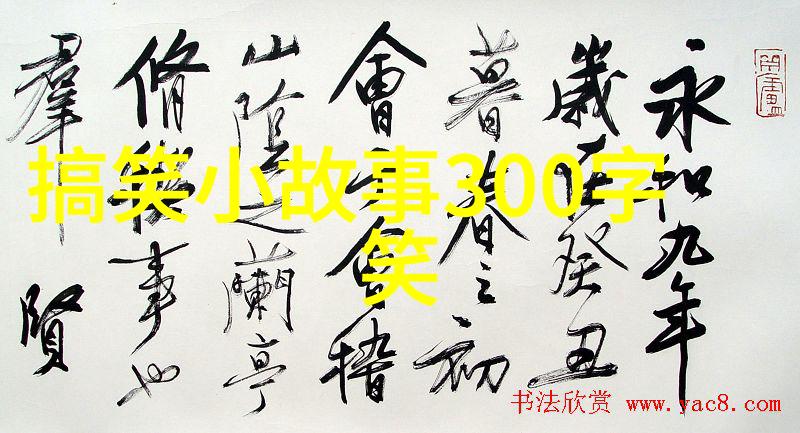 永和九年
歲在癸丑
暮春之初
會于會稽
山陰之蘭亭
脩禊事也
羣賢
搞笑小故事300字
笑
书法欣赏 www.yac8.com